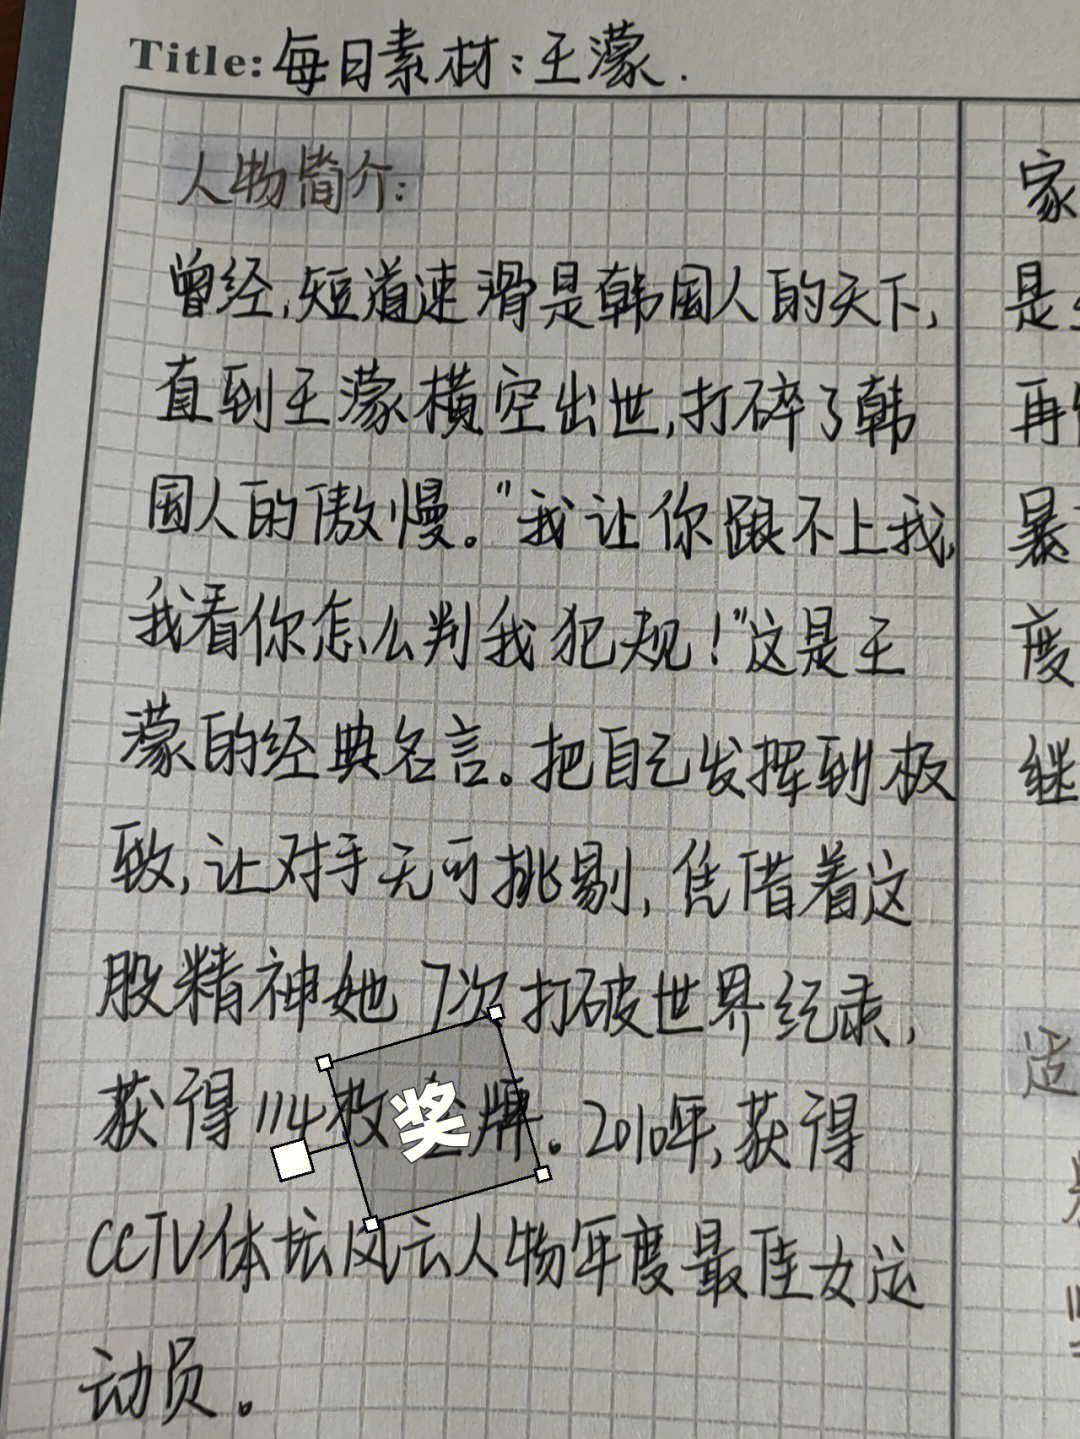 Title: 每日素材:王濛.
人物简介:
曾经,短道速滑是韩国人的天下,
直到王濛横空出世,打碎了韩
国人的傲慢。"我让你跟不上我,
我看你怎么判我犯规!"这是王
濛的经典名言。把自己发挥到极
致,让对手无可挑剔,凭借着这
股精神她7次打破世界纪录,
获得114枚奖牌。2010年,获得
CCTV体坛风云人物年度最佳女运
动员。
家
是
再
暴
度
继
适